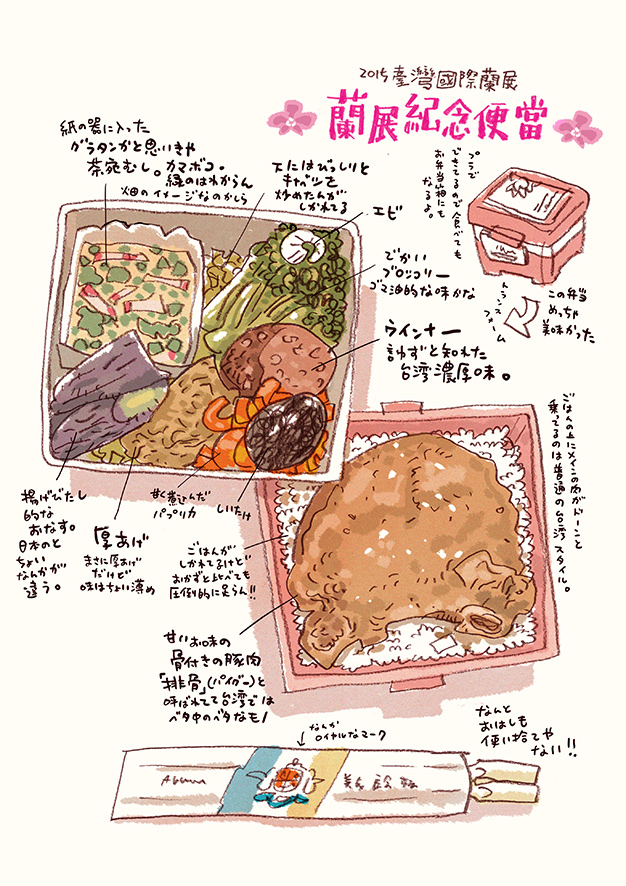 2015臺灣國際蘭展
蘭展紀念便當
紙の器に入った
グラタンかと思いきや
茶宛むし。カマボコ。
緑のはわからん
畑のイメージなのかしら
下にはびっしりと
キャベツを
炒めたんが
しかれてる
エビ
でかい
ブロッコリー
ゴマ油的な味かな
ウインナー
言わずと知れた
台湾濃厚味。
プラで
できてるので食べても
お弁当箱にも
なるよ。
トランスフォーム
この弁当
めっちゃ
美味かった
揚げびたし
的な
おなす。
日本のと
ちょい
なんかが
違う。
厚あげ
まさに厚あげ
だけど
味はちょい薄め
甘く煮込んだ
パプリカ
しいたけ
ごはんが
しかれてるけど
おかずと比べても
圧倒的に足らん!!
ごはんの上にメインの肉がドーンと
乗ってるのは普通の台湾スタイル。
甘いお味の
骨付きの豚肉
「排骨」(パイグー)と
呼ばれてて台湾では
ベタ中のベタなもノ
なんか
ロイヤルなマーク
なんと
おはしも
使い捨てや
ない!!